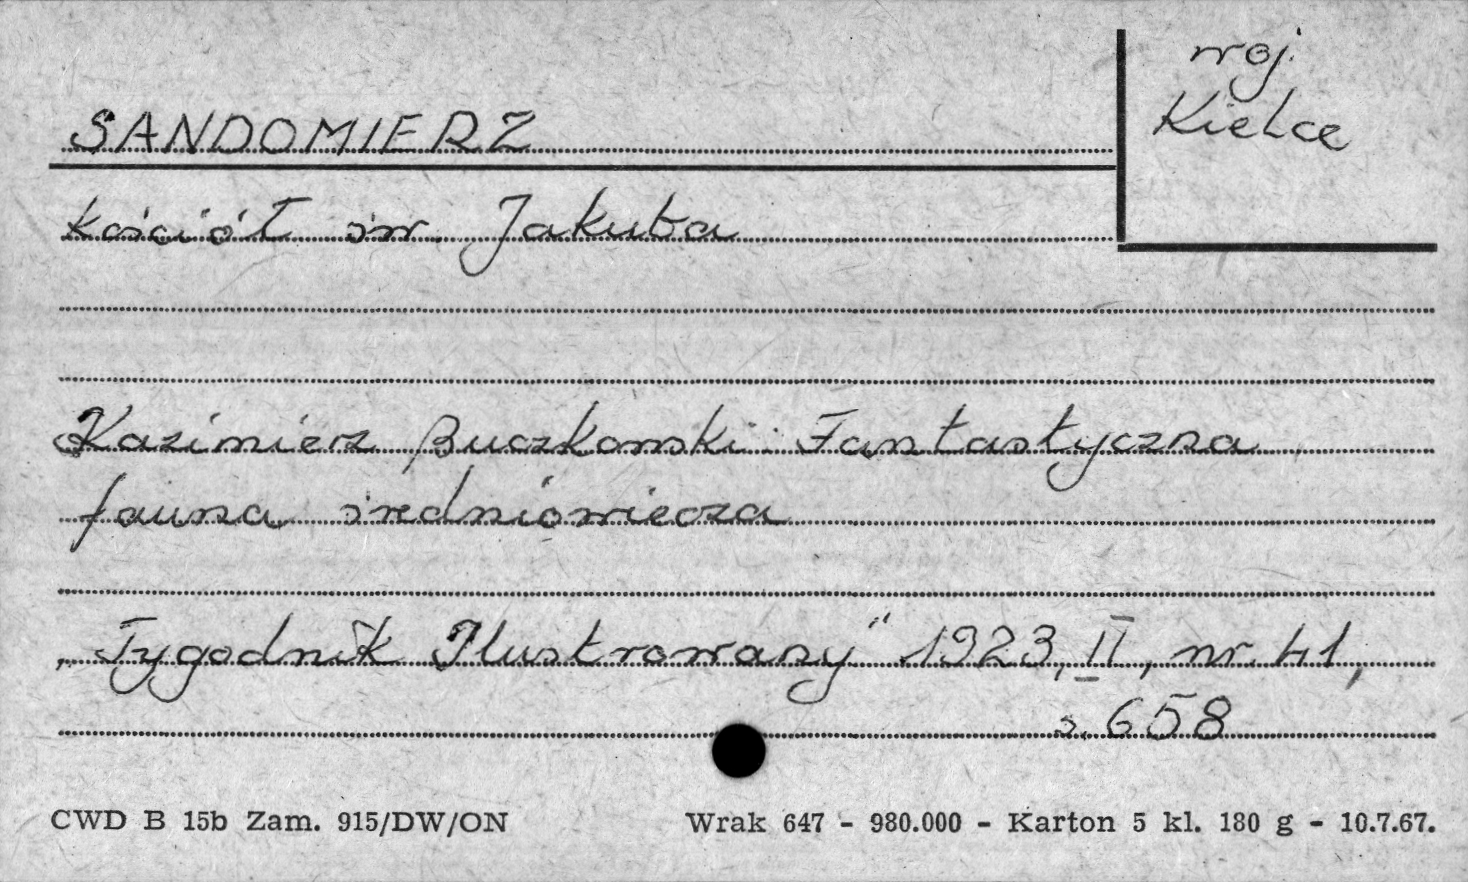 woj.
Kielce
SANDOMIERZ
kościół św. Jakuba
Kazimierz Buczkowski: Fantastyczna
fauna średniowiecza
„Tygodnik Ilustrowany" 1923, II, nr. 41,
s. 658
CWD B 15b Zam. 915/DW/ON Wrak 647 - 980.000 - Karton 5 kl. 180 g - 10.7.67.